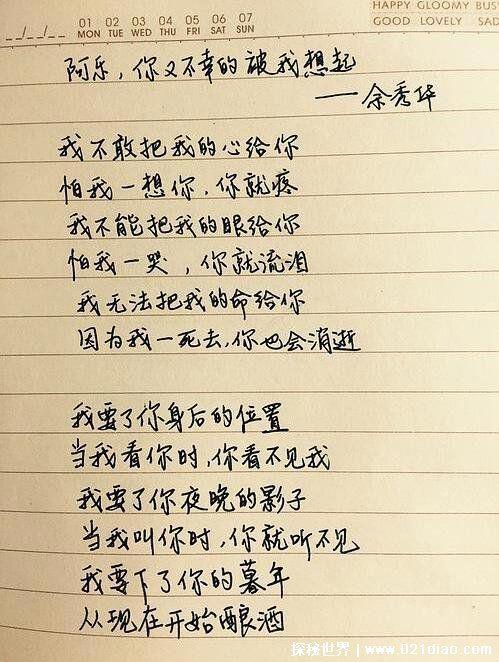 01 02 03 04 05 06 07
MON TUE WED THU FRI SAT SUN
HAPPY GLOOMY BUS
GOOD LOVELY SAD
__/__/__
阿乐，你又不幸的被我想起
——余秀华
我不敢把我的心给你
怕我一想你，你就疼
我不能把我的眼给你
怕我一哭，你就流泪
我无法把我的命给你
因为我一死去，你也会消逝
我要了你身后的位置
当我看你时，你看不见我
我要了你夜晚的影子
当我叫你时，你就听不见
我要下了你的暮年
从现在开始酿酒
探秘世界 | www.021diao.com